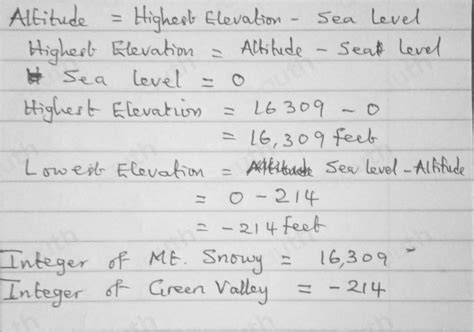 Altitude = Highest Elevation - Sea level
Highest Elevation = Altitude - Sea level
Sea level = 0
Highest Elevation = 16 309 - 0
= 16,309 feet
Lowest Elevation = Sea level - Altitude
= 0 - 214
= -214 feet
Integer of Mt. Snowy = 16,309
Integer of Green Valley = -214